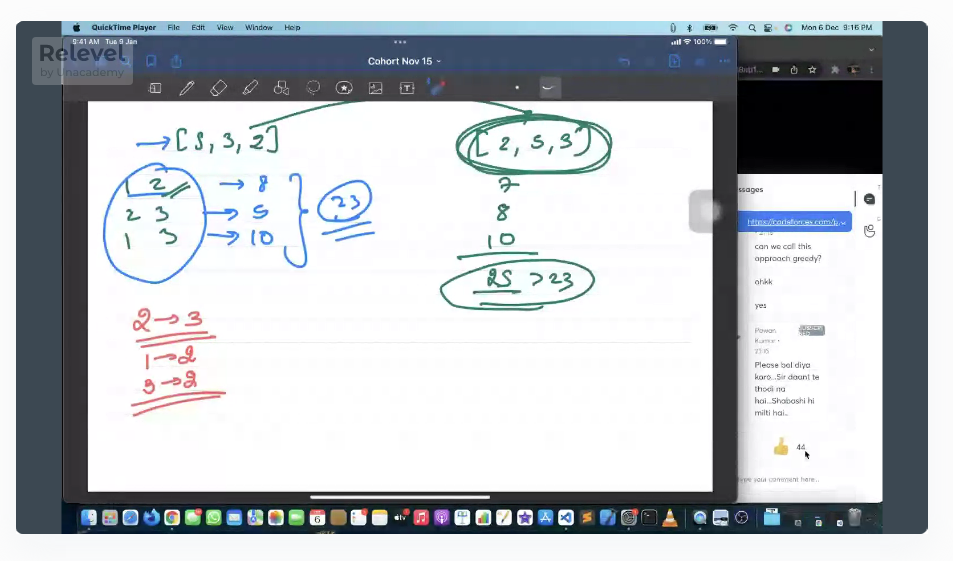 QuickTime Player File Edit View Window Help
Mon 6 Dec 9:16 PM
9:41 AM Tue 9 Jan
100%
Relevel
by Unacademy
Cohort Nov 15
→ [5, 3, 2]
[2, 5, 3]
1 2 → 8
2 3 → 5
1 3 → 10
23
7
8
10
25 > 23
2 → 3
1 → 2
3 → 2
ssages
https://codeforces.com/p..
can we call this
approach greedy?
ohkk
yes
Pawan
Kumar •
Please bol diya
karo..Sir daant te
thodi na
hai..Shabashi hi
milti hai..
44
type your comment here...